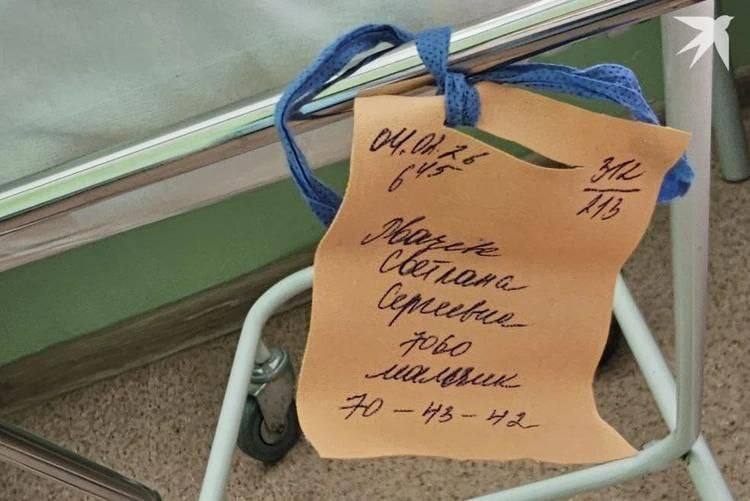 04.02.26
6 45
312
213
Светлана
Сергеевна
7060
мальчик
70 - 43 - 42